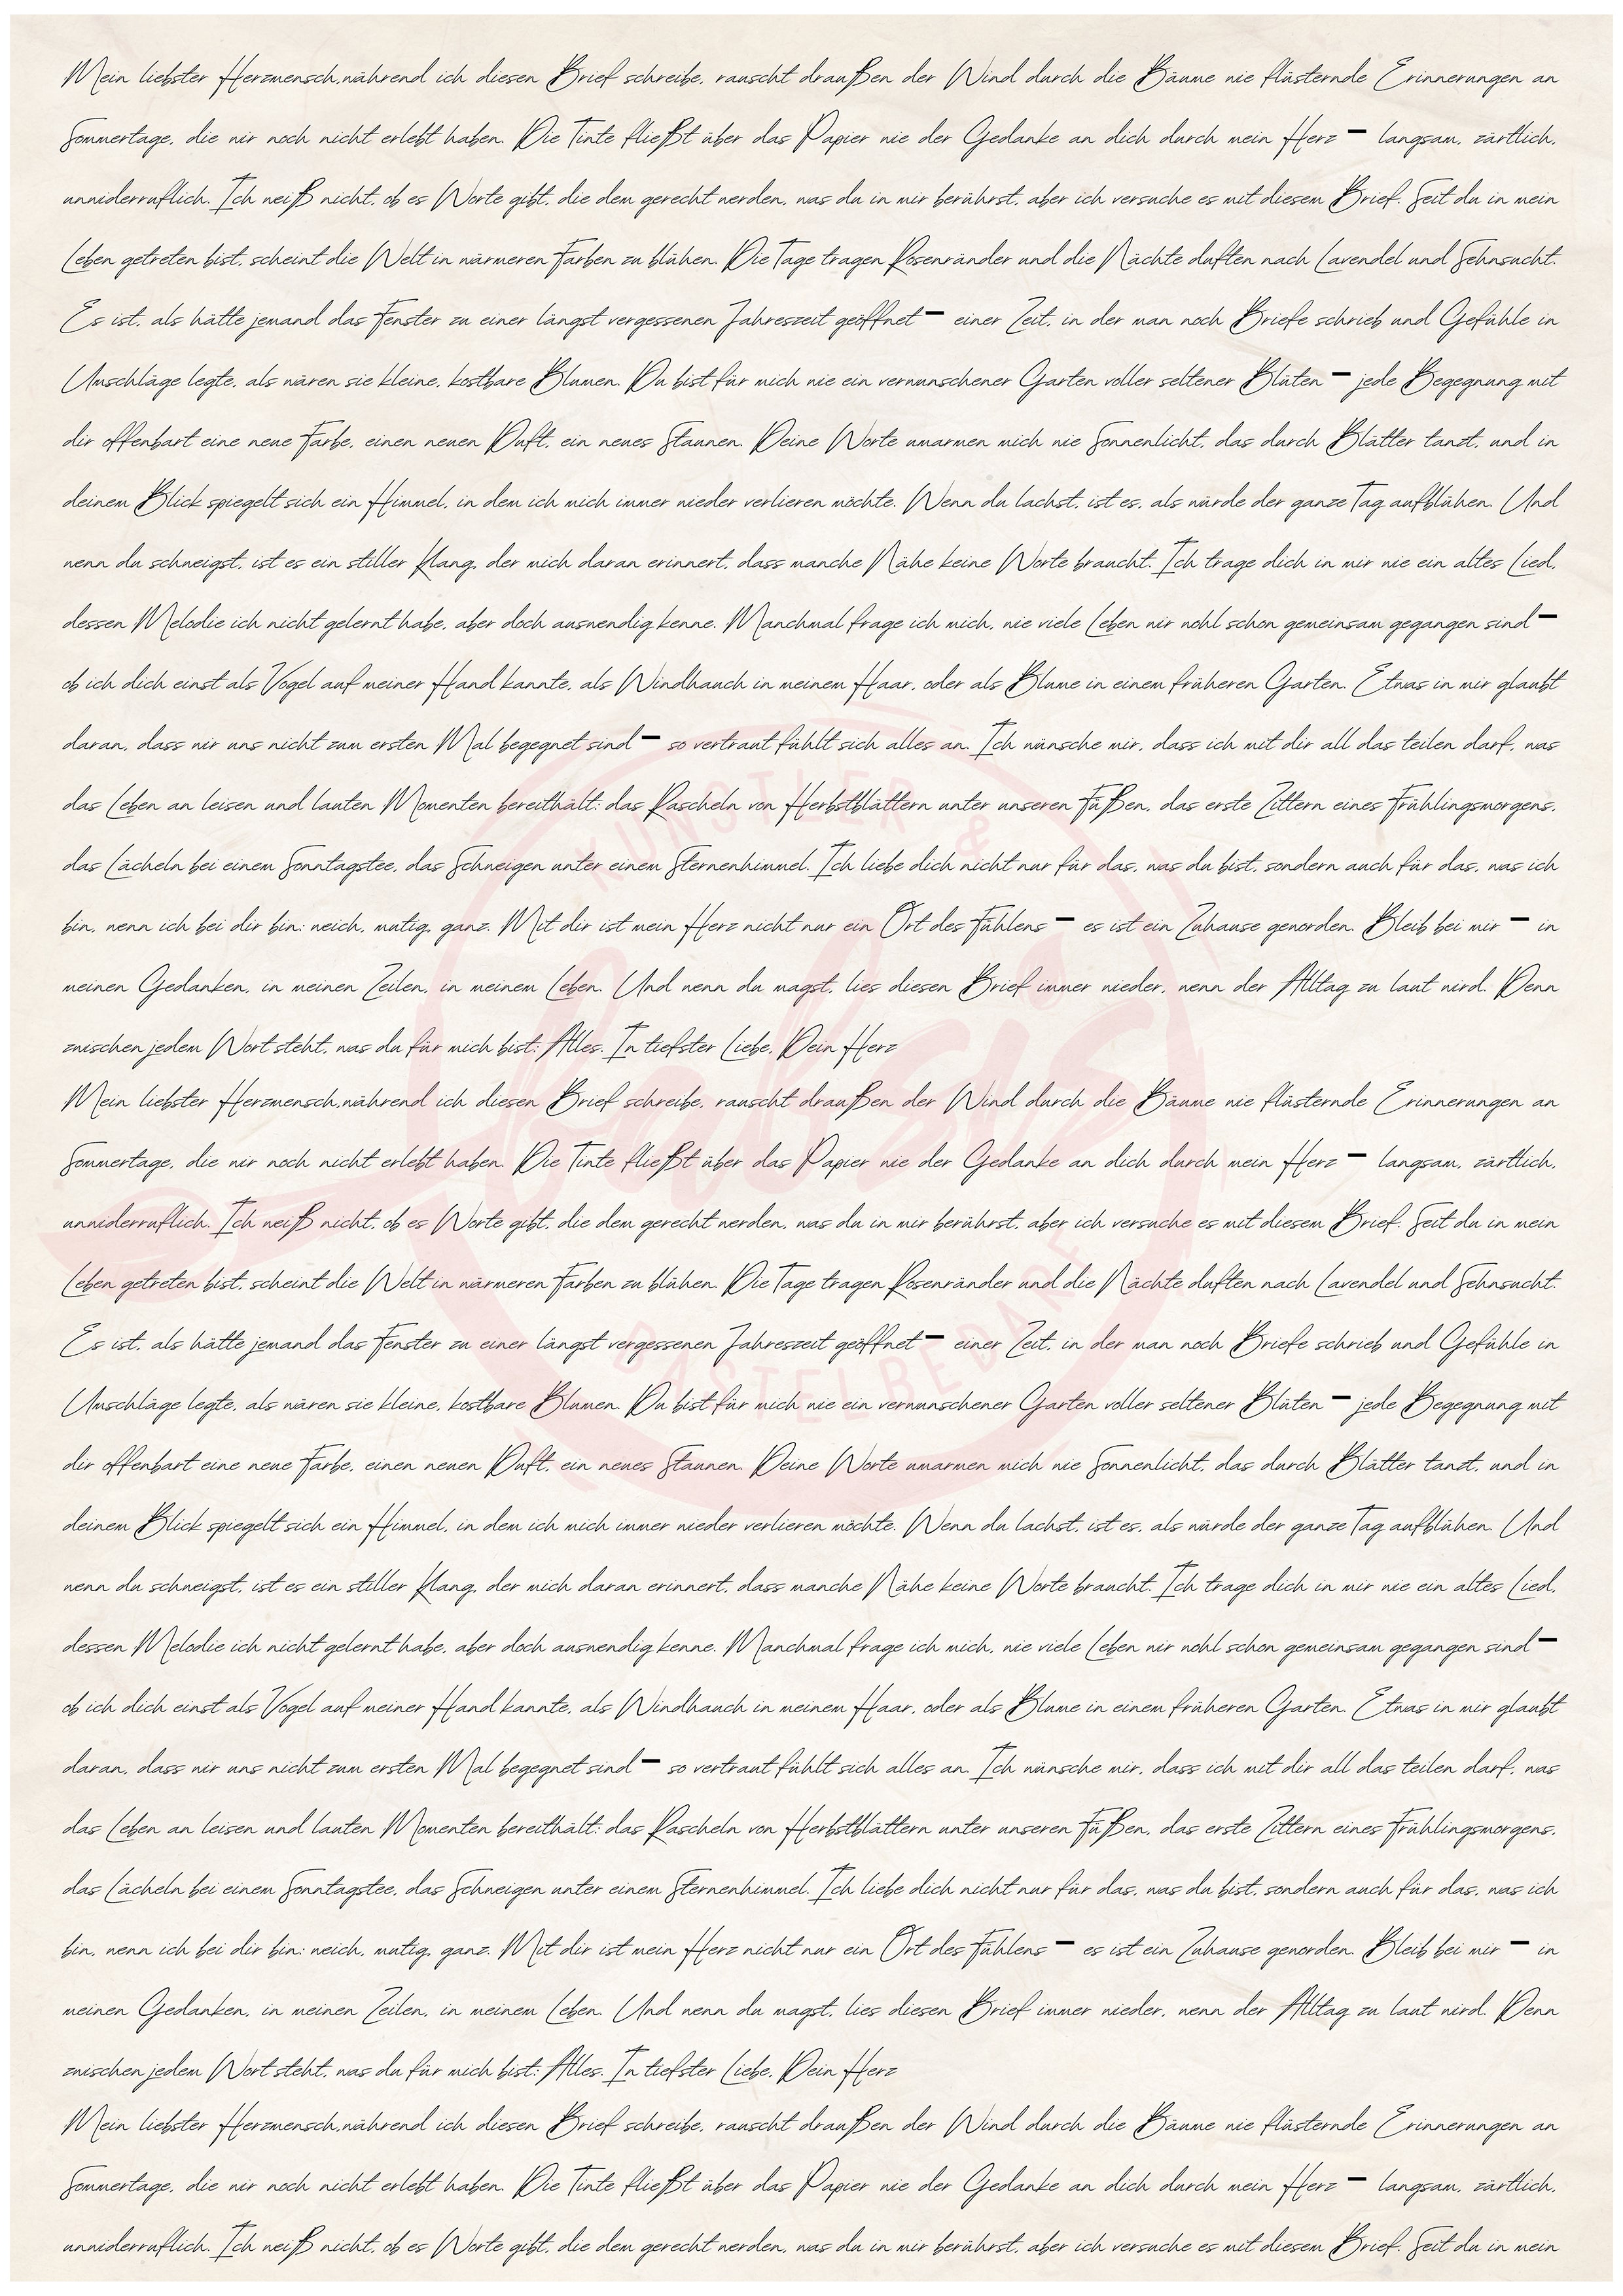 Mein liebster Herzmensch,während ich diesen Brief schreibe, rauscht draußen der Wind durch die Bäume wie flüsternde Erinnerungen an
Sommertage, die wir noch nicht erlebt haben. Die Tinte fließt über das Papier wie der Gedanke an dich durch mein Herz – langsam, zärtlich,
unwiderruflich. Ich weiß nicht, ob es Worte gibt, die dem gerecht werden, was du in mir berührst, aber ich versuche es mit diesem Brief. Seit du in mein
Leben getreten bist, scheint die Welt in wärmeren Farben zu blühen. Die Tage tragen Rosenränder und die Nächte duften nach Lavendel und Sehnsucht.
Es ist, als hätte jemand das Fenster zu einer längst vergessenen Jahreszeit geöffnet – einer Zeit, in der man noch Briefe schrieb und Gefühle in
Umschläge legte, als wären sie kleine, kostbare Blumen. Du bist für mich wie ein verwunschener Garten voller seltener Blüten – jede Begegnung mit
dir offenbart eine neue Farbe, einen neuen Duft, ein neues Staunen. Deine Worte umarmen mich wie Sonnenlicht, das durch Blätter tanzt, und in
deinem Blick spiegelt sich ein Himmel, in dem ich mich immer wieder verlieren möchte. Wenn du lachst, ist es, als würde der ganze Tag aufblühen. Und
wenn du schweigst, ist es ein stiller Klang, der mich daran erinnert, dass manche Nähe keine Worte braucht. Ich trage dich in mir wie ein altes Lied,
dessen Melodie ich nicht gelernt habe, aber doch auswendig kenne. Manchmal frage ich mich, wie viele Leben wir wohl schon gemeinsam gegangen sind –
ob ich dich einst als Vogel auf meiner Hand kannte, als Windhauch in meinem Haar, oder als Blume in einem früheren Garten. Etwas in mir glaubt
daran, dass wir uns nicht zum ersten Mal begegnet sind – so vertraut fühlt sich alles an. Ich wünsche mir, dass ich mit dir all das teilen darf, was
das Leben an leisen und lauten Momenten bereithält: das Rascheln von Herbstblättern unter unseren Füßen, das erste Zittern eines Frühlingsmorgens,
das Lächeln bei einem Sonntagstee, das Schweigen unter einem Sternenhimmel. Ich liebe dich nicht nur für das, was du bist, sondern auch für das, was ich
bin, wenn ich bei dir bin: weich, mutig, ganz. Mit dir ist mein Herz nicht nur ein Ort des Fühlens – es ist ein Zuhause geworden. Bleib bei mir – in
meinen Gedanken, in meinen Zeilen, in meinem Leben. Und wenn du magst, lies diesen Brief immer wieder, wenn der Alltag zu laut wird. Denn
zwischen jedem Wort steht, was du für mich bist: Alles. In tiefster Liebe, Dein Herz
Mein liebster Herzmensch,während ich diesen Brief schreibe, rauscht draußen der Wind durch die Bäume wie flüsternde Erinnerungen an
Sommertage, die wir noch nicht erlebt haben. Die Tinte fließt über das Papier wie der Gedanke an dich durch mein Herz – langsam, zärtlich,
unwiderruflich. Ich weiß nicht, ob es Worte gibt, die dem gerecht werden, was du in mir berührst, aber ich versuche es mit diesem Brief. Seit du in mein
Leben getreten bist, scheint die Welt in wärmeren Farben zu blühen. Die Tage tragen Rosenränder und die Nächte duften nach Lavendel und Sehnsucht.
Es ist, als hätte jemand das Fenster zu einer längst vergessenen Jahreszeit geöffnet – einer Zeit, in der man noch Briefe schrieb und Gefühle in
Umschläge legte, als wären sie kleine, kostbare Blumen. Du bist für mich wie ein verwunschener Garten voller seltener Blüten – jede Begegnung mit
dir offenbart eine neue Farbe, einen neuen Duft, ein neues Staunen. Deine Worte umarmen mich wie Sonnenlicht, das durch Blätter tanzt, und in
deinem Blick spiegelt sich ein Himmel, in dem ich mich immer wieder verlieren möchte. Wenn du lachst, ist es, als würde der ganze Tag aufblühen. Und
wenn du schweigst, ist es ein stiller Klang, der mich daran erinnert, dass manche Nähe keine Worte braucht. Ich trage dich in mir wie ein altes Lied,
dessen Melodie ich nicht gelernt habe, aber doch auswendig kenne. Manchmal frage ich mich, wie viele Leben wir wohl schon gemeinsam gegangen sind –
ob ich dich einst als Vogel auf meiner Hand kannte, als Windhauch in meinem Haar, oder als Blume in einem früheren Garten. Etwas in mir glaubt
daran, dass wir uns nicht zum ersten Mal begegnet sind – so vertraut fühlt sich alles an. Ich wünsche mir, dass ich mit dir all das teilen darf, was
das Leben an leisen und lauten Momenten bereithält: das Rascheln von Herbstblättern unter unseren Füßen, das erste Zittern eines Frühlingsmorgens,
das Lächeln bei einem Sonntagstee, das Schweigen unter einem Sternenhimmel. Ich liebe dich nicht nur für das, was du bist, sondern auch für das, was ich
bin, wenn ich bei dir bin: weich, mutig, ganz. Mit dir ist mein Herz nicht nur ein Ort des Fühlens – es ist ein Zuhause geworden. Bleib bei mir – in
meinen Gedanken, in meinen Zeilen, in meinem Leben. Und wenn du magst, lies diesen Brief immer wieder, wenn der Alltag zu laut wird. Denn
zwischen jedem Wort steht, was du für mich bist: Alles. In tiefster Liebe, Dein Herz
Mein liebster Herzmensch,während ich diesen Brief schreibe, rauscht draußen der Wind durch die Bäume wie flüsternde Erinnerungen an
Sommertage, die wir noch nicht erlebt haben. Die Tinte fließt über das Papier wie der Gedanke an dich durch mein Herz – langsam, zärtlich,
unwiderruflich. Ich weiß nicht, ob es Worte gibt, die dem gerecht werden, was du in mir berührst, aber ich versuche es mit diesem Brief. Seit du in mein
KÜNSTLER &
BASTELBEDARF